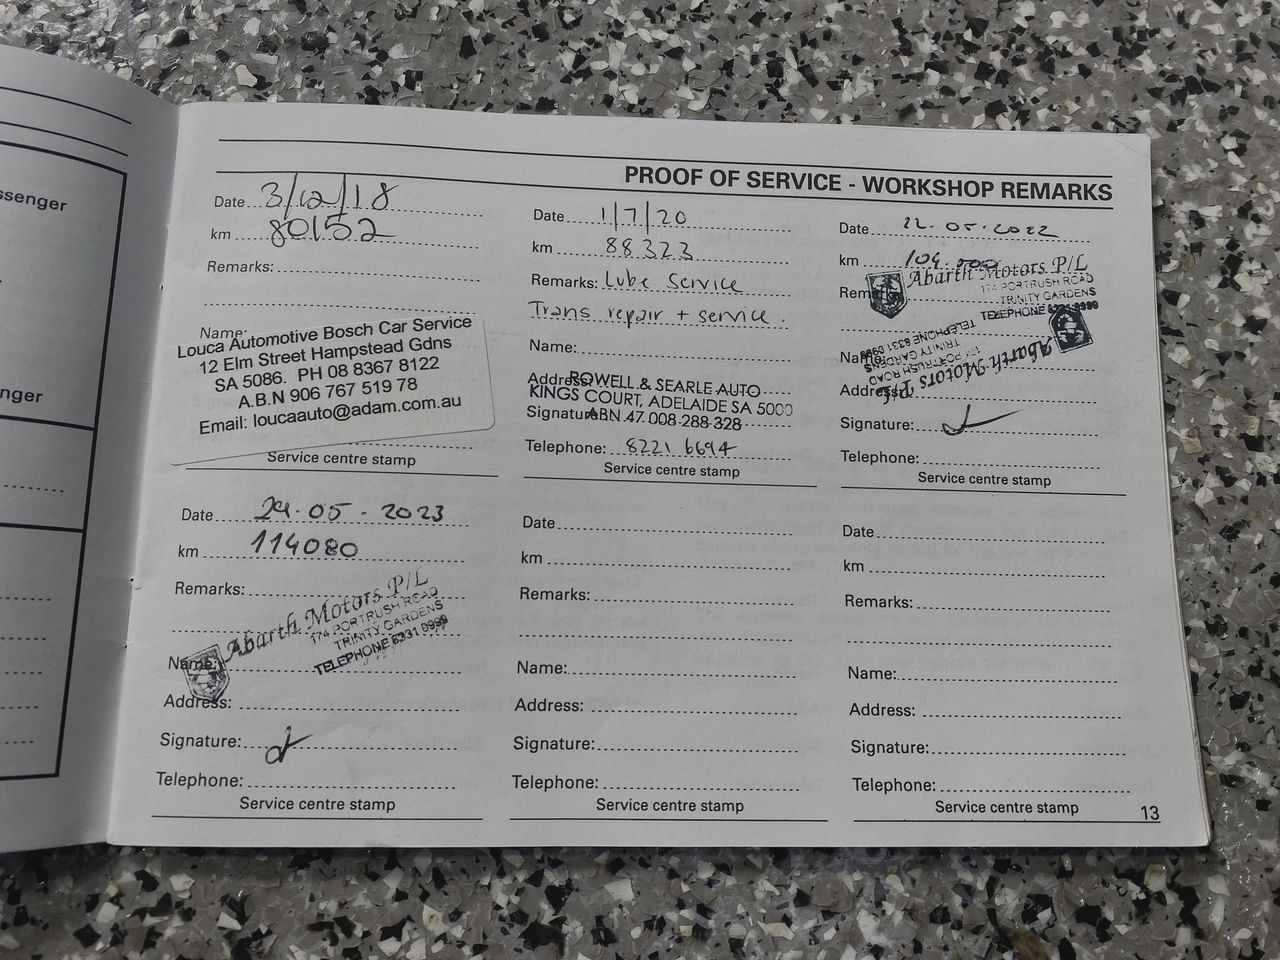 ssenger
nger
PROOF OF SERVICE - WORKSHOP REMARKS
Date 3/12/18
km 80152
Remarks:
Name:
Louca Automotive Bosch Car Service
12 Elm Street Hampstead Gdns
SA 5086. PH 08 8367 8122
A.B.N 906 767 519 78
Email: loucaauto@adam.com.au
Service centre stamp
Date 1/7/20
km 88323
Remarks: Lube Service
Trans repair + service.
Name:
Address:
ROWELL & SEARLE AUTO
KINGS COURT, ADELAIDE SA 5000
Signature:
ABN 47 008 288 328
Telephone: 8221 6694
Service centre stamp
Date 22.05.2022
km 104.000
Abarth Motors P/L
174 PORTRUSH ROAD
Remarks:
TRINITY GARDENS
TELEPHONE 8331 9999
Name:
Abarth Motors P/L
174 PORTRUSH ROAD
TRINITY GARDENS
TELEPHONE 8331 9999
Address:
Signature:
Telephone:
Service centre stamp
Date 29.05.2023
km 114080
Remarks:
Abarth Motors P/L
174 PORTRUSH ROAD
TRINITY GARDENS
TELEPHONE 8331 9999
Name:
Address:
Signature:
Telephone:
Service centre stamp
Date
km
Remarks:
Name:
Address:
Signature:
Telephone:
Service centre stamp
Date
km
Remarks:
Name:
Address:
Signature:
Telephone:
Service centre stamp
13